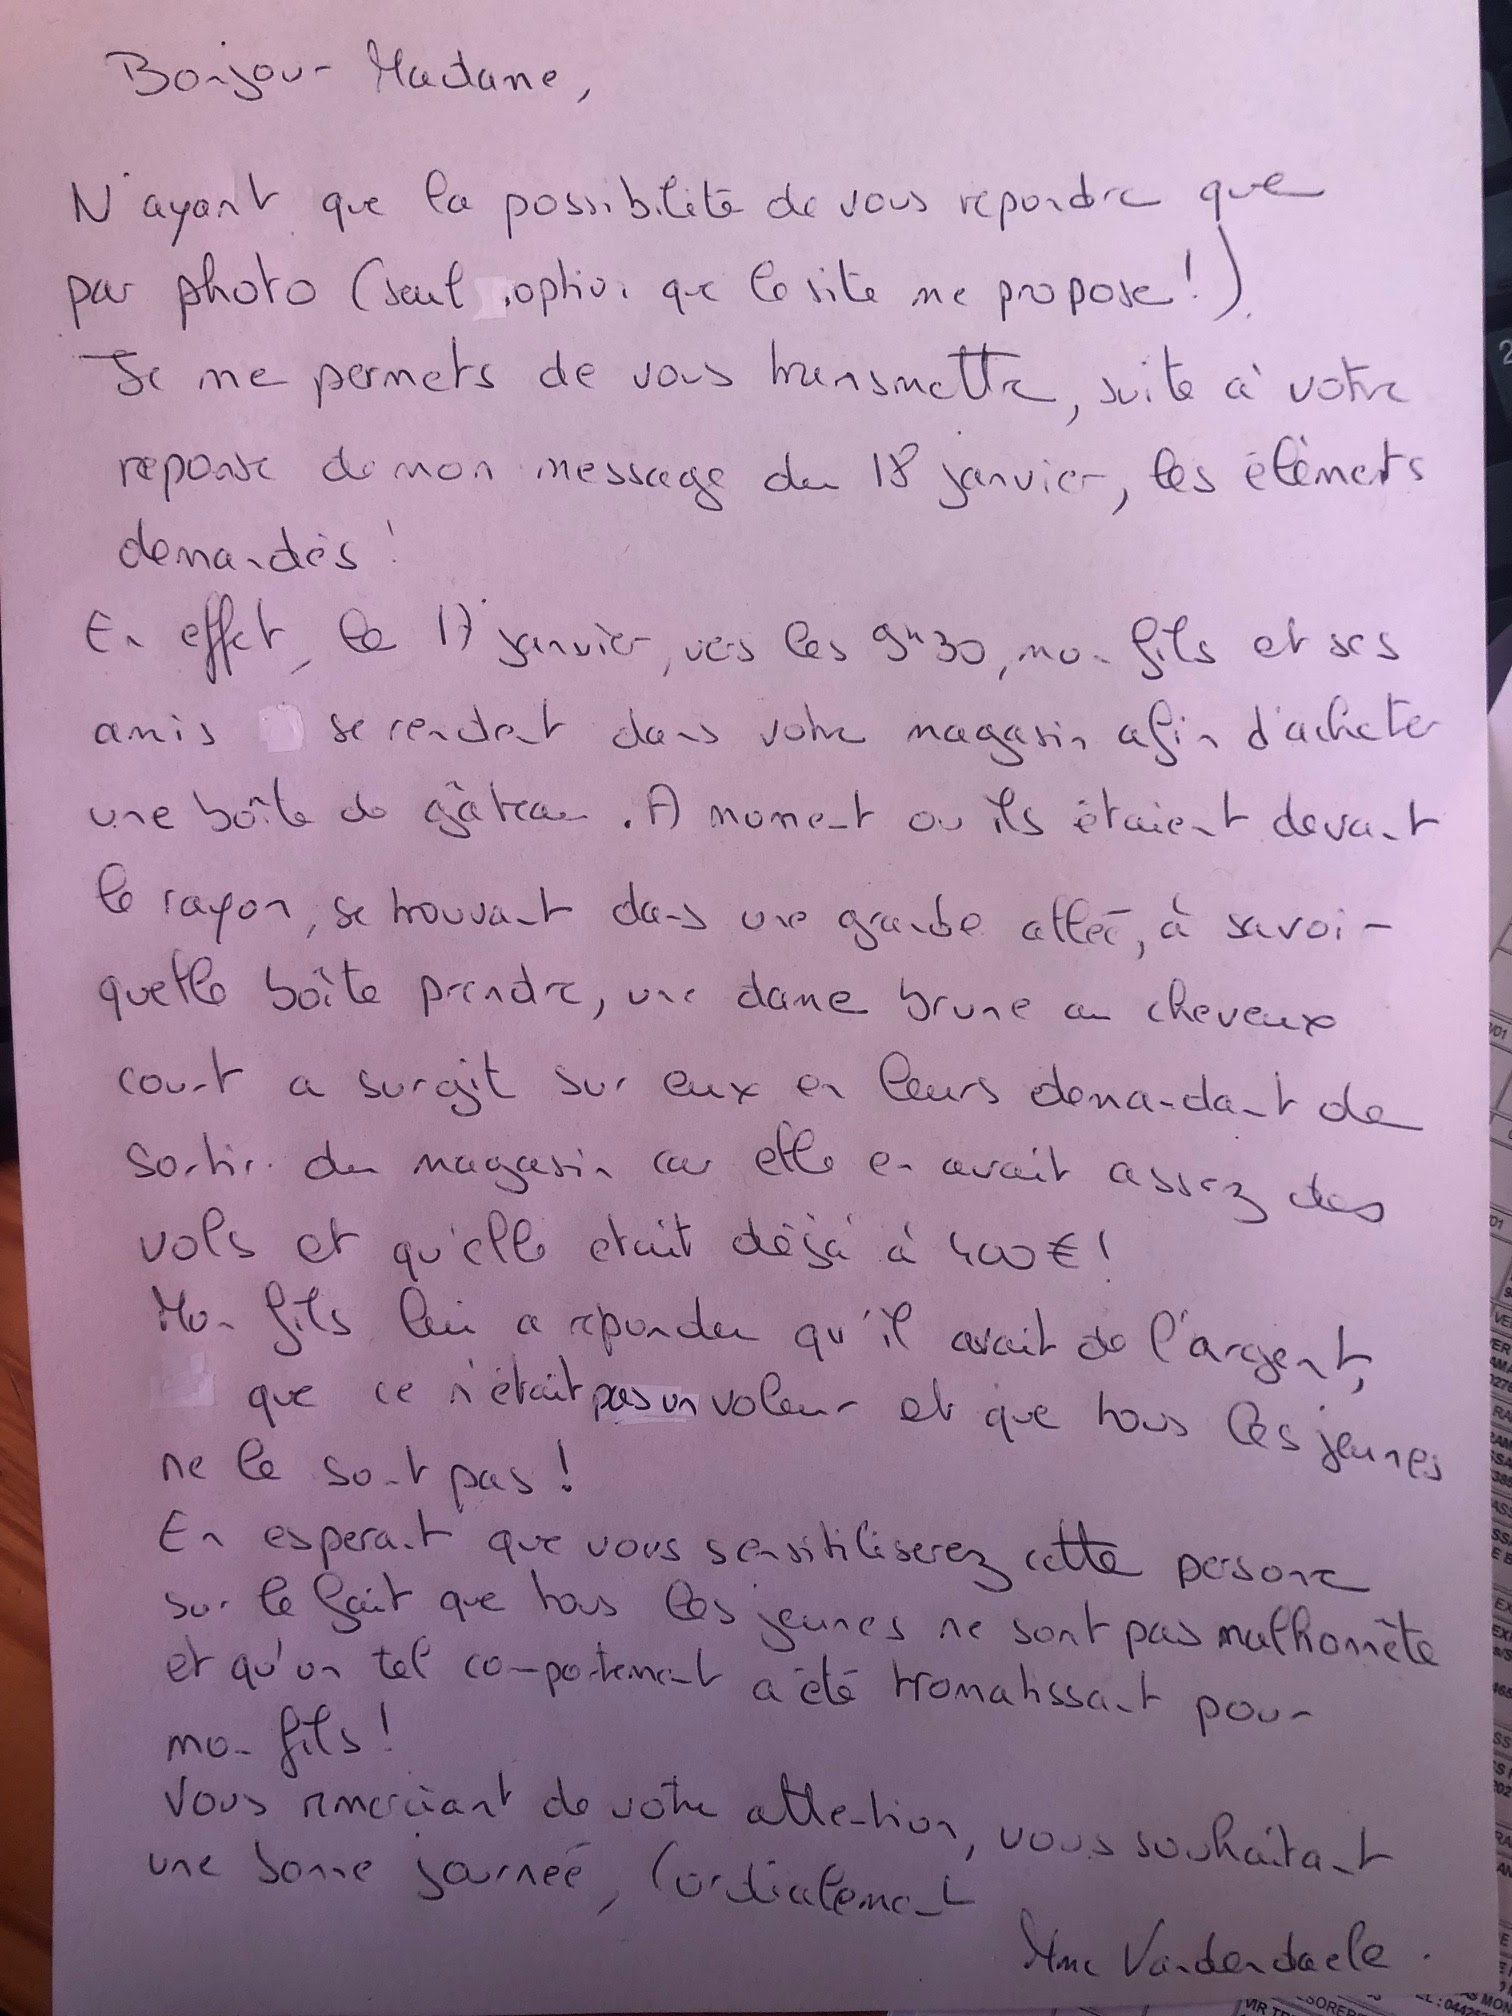 Bonjour Madame,
N'ayant que la possibilité de vous repondre que
par photo (seul option que le site me propose!)
Je me permets de vous transmettre, suite à votre
reponse de mon message du 18 janvier, les éléments
demandés!
En effet, le 17 janvier, vers les 9h30, mon fils et ses
amis se rendent dans votre magasin afin d'acheter
une boîte de gâteau. A moment ou ils étaient devant
le rayon, se trouvant dans une grande allée, à savoir
quelle boîte prendre, une dame brune au cheveux
court a surgit sur eux en leurs demandant de
sortir du magasin car elle en avait assez des
vols et qu'elle etait déjà à 400€!
Mon fils lui a repondu qu'il avait de l'argent,
que ce n'était pas un voleur et que tous les jeunes
ne le sont pas!
En esperant que vous sensibiliserez cette personne
sur le fait que tous les jeunes ne sont pas malhonnête
et qu'un tel comportement a été tromatissant pour
mon fils!
Vous remerciant de votre attention, vous souhaitant
une bonne journée, Cordialement
Mme Vandendaele.